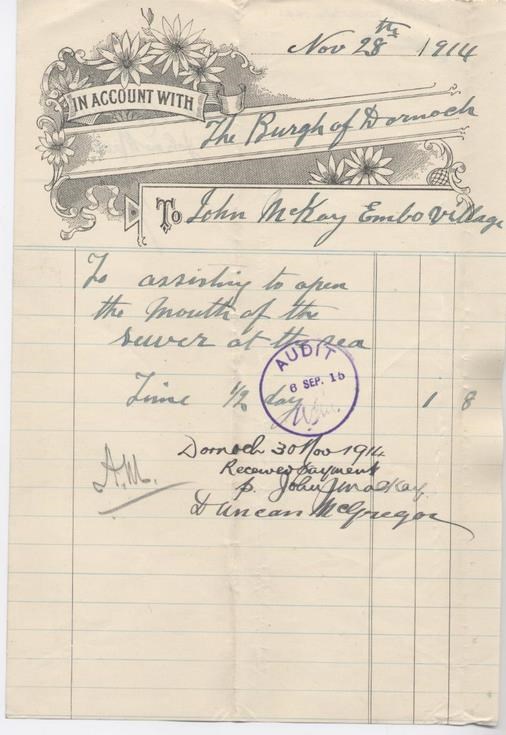 Nov 28th 1914
IN ACCOUNT WITH
The Burgh of Dornoch
To John McKay Embo Village
To assisting to open
the mouth of the
sewer at the sea
AUDIT
6 SEP. 15
Time 1/2 day 1 8
Dornoch 30 Nov 1914
Received payment
A.M.
p. John J MacKay
Duncan McGregor